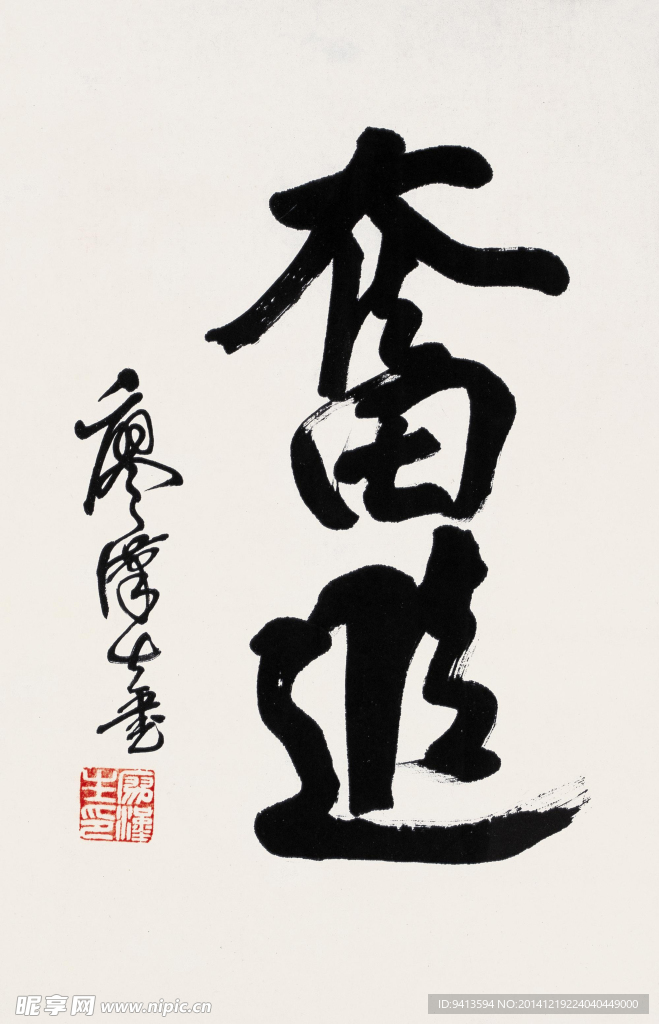 奮進
廖漢生書
廖漢生印
昵享网 www.nipic.cn
ID:9413594 NO:20141219224040449000